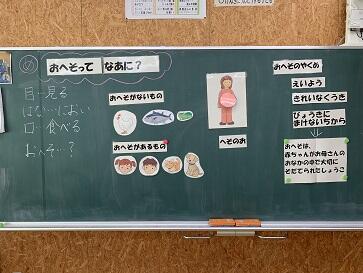 おへそって なあに？
目…見る
はな…におい
口…食べる
おへそ…？
おへそがないもの
おへそがあるもの
へそのお
おへそのやくめ
えいよう
きれいなくうき
びょうきに
まけないちから
おへそは、
赤ちゃんがお母さんの
おなかの中で大切に
そだてられたしょうこ